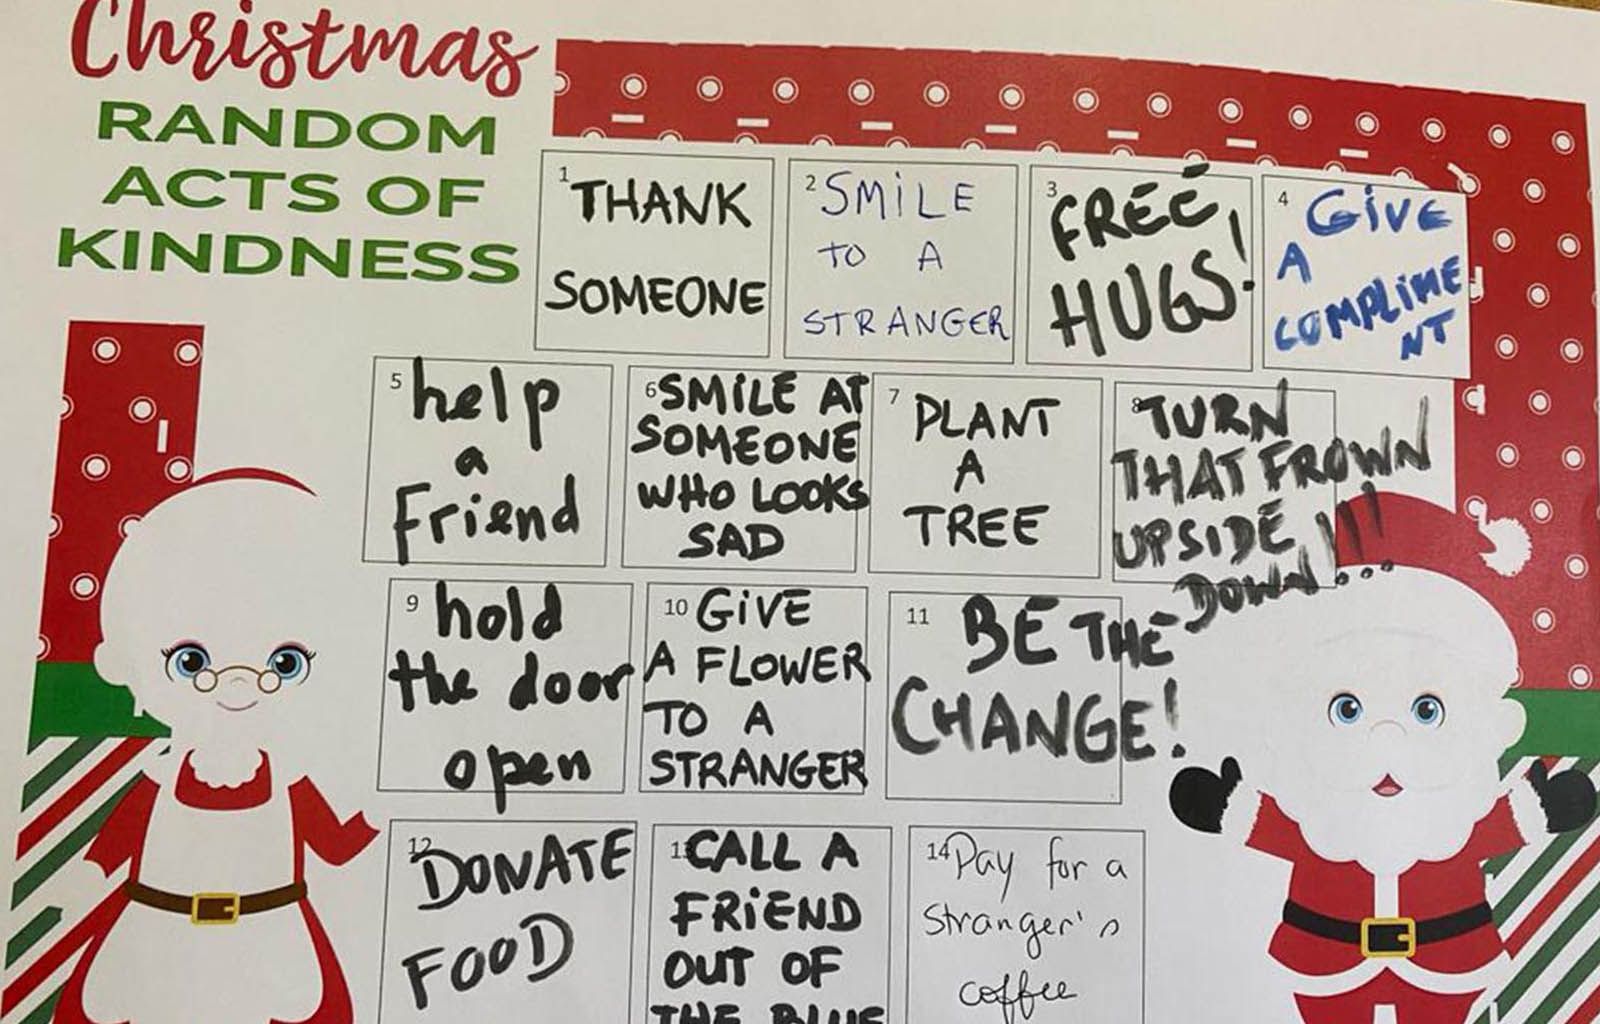 Christmas
RANDOM
ACTS OF
KINDNESS
1
THANK
SOMEONE
2
SMILE
TO A
STRANGER
3
FREE
HUGS!
4
GIVE
A
COMPLIME
NT
5
help
a
Friend
6
SMILE AT
SOMEONE
WHO LOOKS
SAD
7
PLANT
A
TREE
8
TURN
THAT FROWN
UPSIDE
DOWN!!!...
9
hold
the door
open
10
GIVE
A FLOWER
TO A
STRANGER
11
BE THE
CHANGE!
12
DONATE
FOOD
13
CALL A
FRIEND
OUT OF
THE BLUE
14
Pay for a
stranger's
coffee